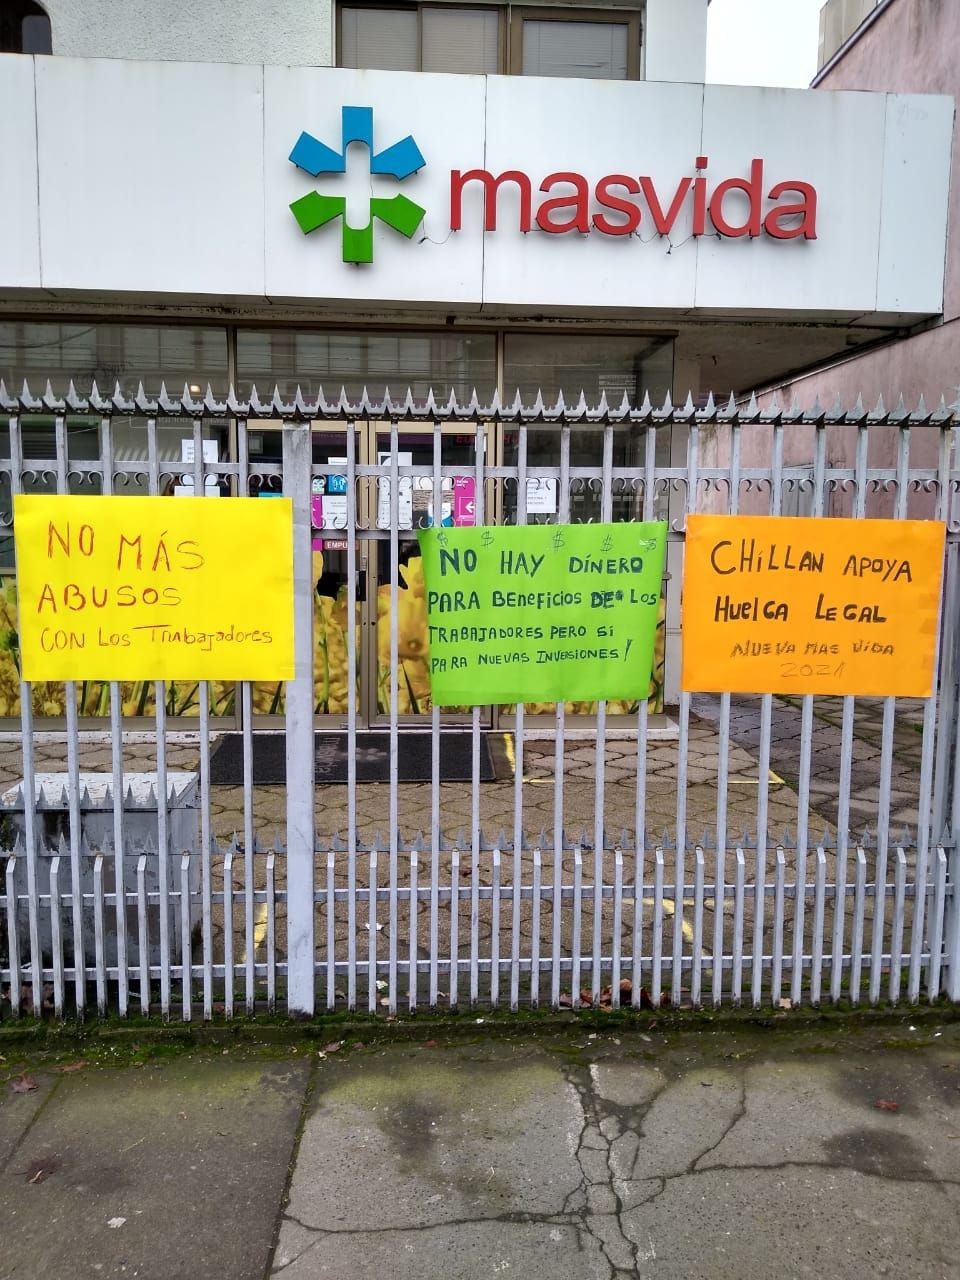 masvida
NO MÁS
ABUSOS
CON LOS TRABAJADORES
$ $ $ $ $
NO HAY DÍNERO
PARA BENEFICIOS DE LOS
TRABAJADORES PERO SI
PARA NUEVAS INVERSIONES!
CHÍLLAN APOYA
HUELGA LEGAL
NUEVA MAS VIDA
2021
EMPU